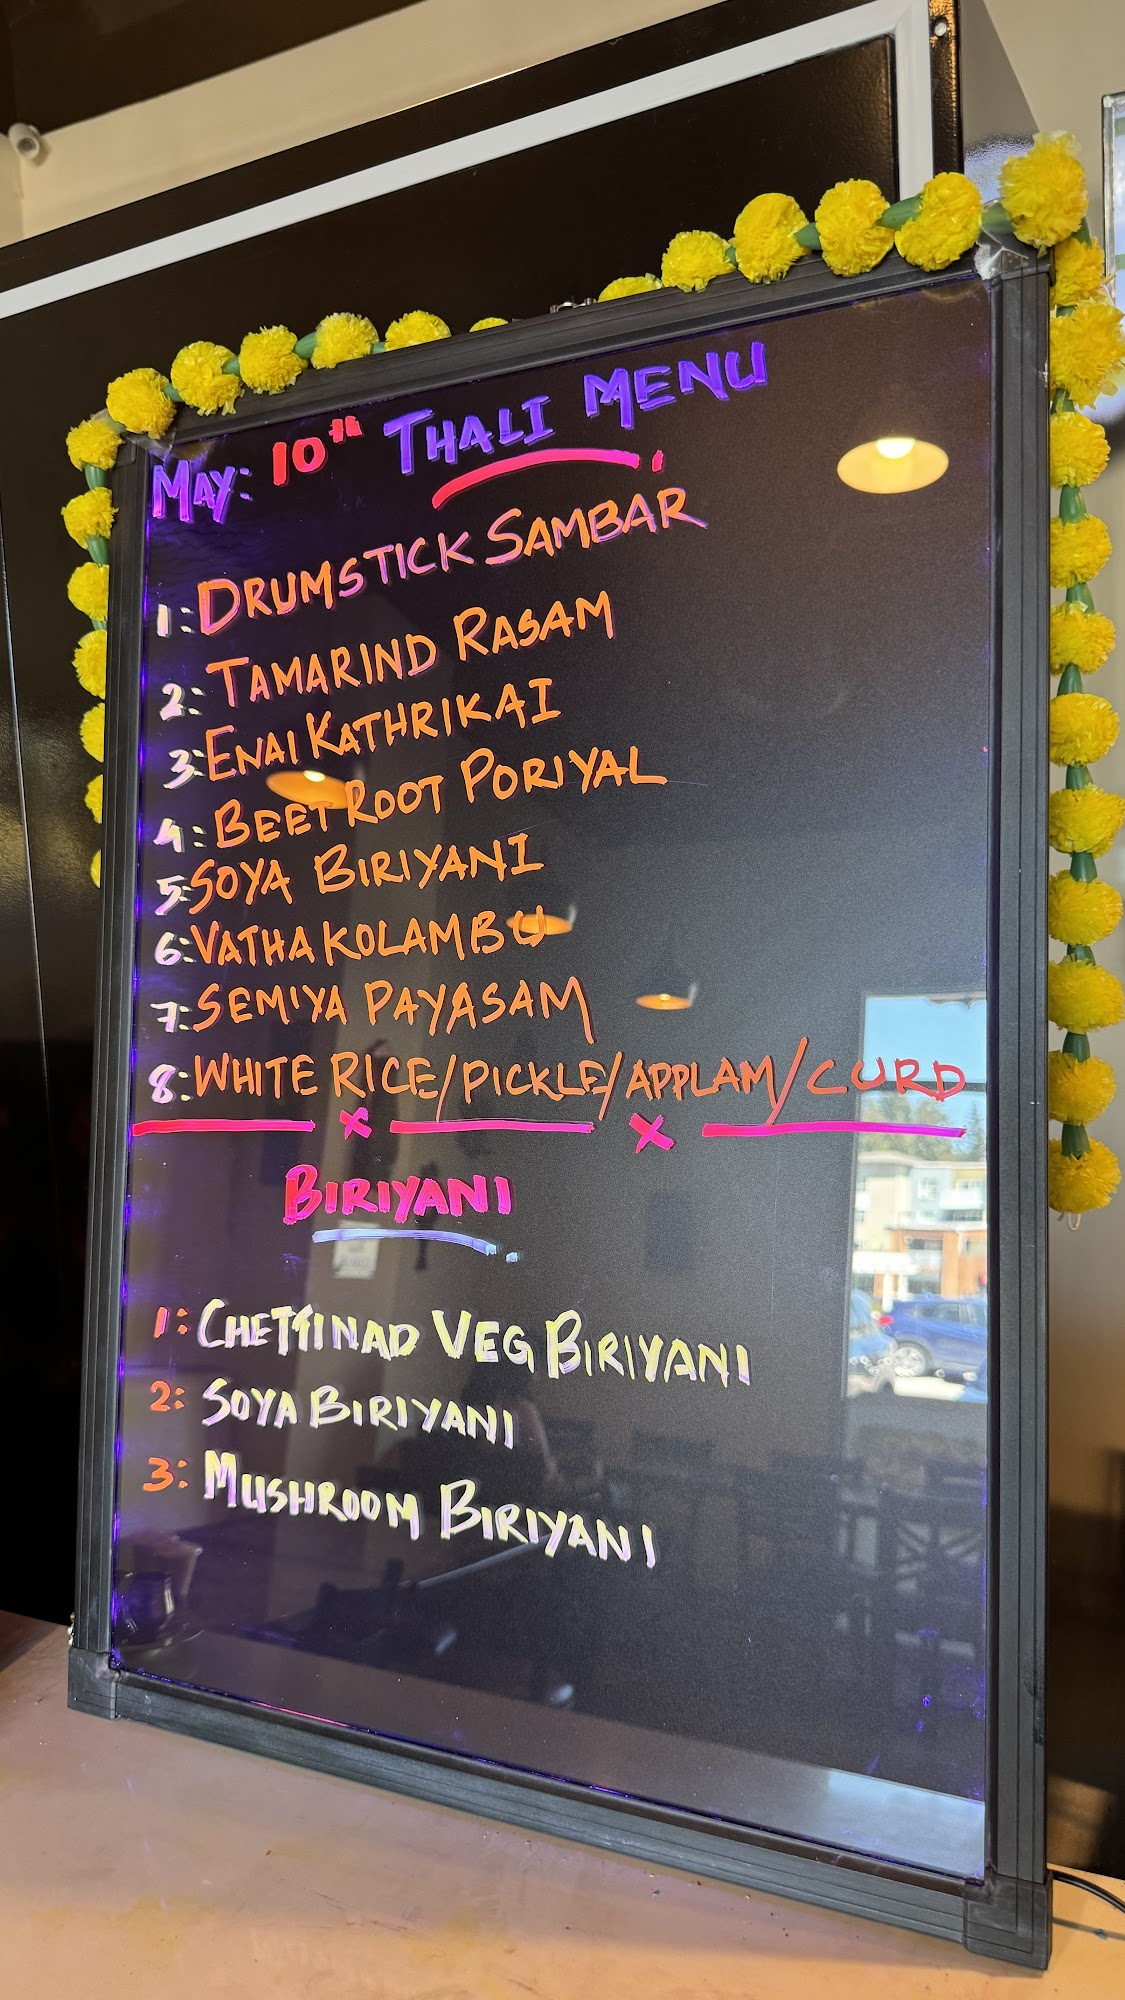 MAY: 10th THALI MENU
1: DRUMSTICK SAMBAR
2: TAMARIND RASAM
3: ENAI KATHRIKAI
4: BEETROOT PORIYAL
5: SOYA BIRIYANI
6: VATHA KOLAMBU
7: SEMIYA PAYASAM
8: WHITE RICE/PICKLE/APPLAM/CURD
BIRIYANI
1: CHETTINAD VEG BIRIYANI
2: SOYA BIRIYANI
3: MUSHROOM BIRIYANI